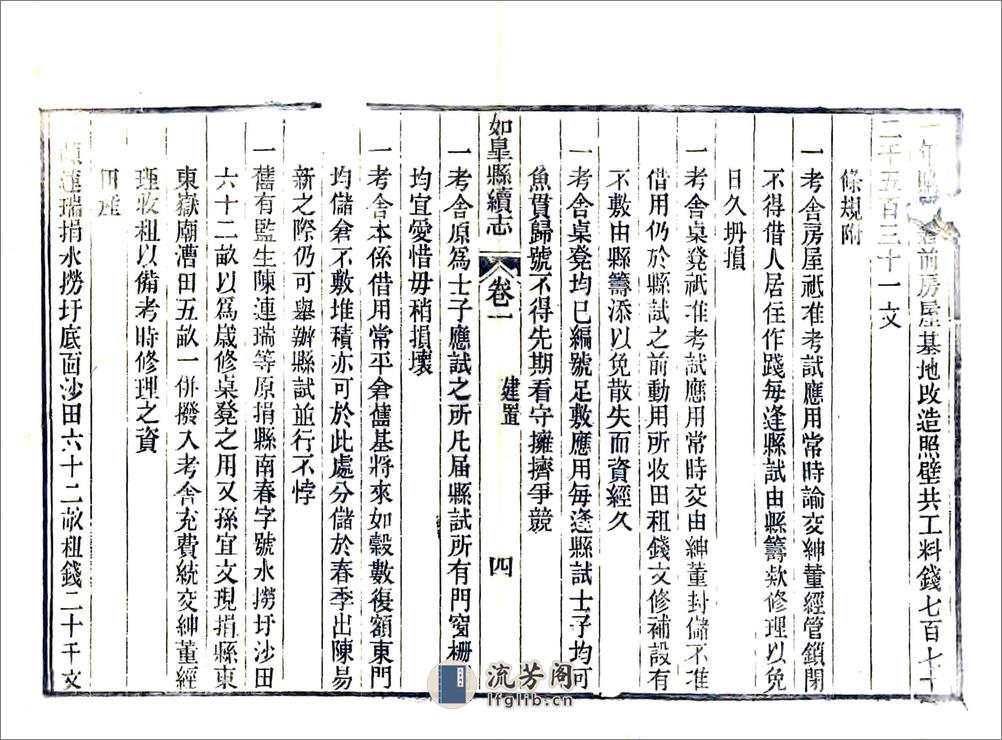 前房屋基地改造照壁共工料錢七百七十
二千五百三十一文
條規附
一考舍房屋祇准考試應用常時論交紳董經管鎖閉
不得借人居住作踐每逢縣試由縣籌欵修理以免
日久坍損
一考舍桌凳祇准考試應用常時交由紳董封儲不准
借用仍於縣試之前動用所收田租錢文修補設有
不敷由縣籌添以免散失而資經久
一考舍桌凳均已編號足敷應用每逢縣試士子均可
魚貫歸號不得先期看守擁擠爭競
如皋縣續志
卷一
建置
四
一考舍原為士子應試之所凡屆縣試所有門窗柵門
均宜愛惜毋稍損壞
一考舍本係借用常平倉舊基將來如穀數復額東門
均儲倉不敷堆積亦可於此處分儲於春季出陳易
新之際仍可舉辦縣試並行不悖
一舊有監生陳連瑞等原捐縣南春字號水撈圩沙田
六十二畝以為歲修桌凳之用又孫宜文現捐縣東
東嶽廟漕田五畝一併撥入考舍充費統交紳董經
理收租以備考時修理之資
田產
連瑞捐水撈圩底面沙田六十二畝租錢二十千文
流芳阁
lfglib.cn